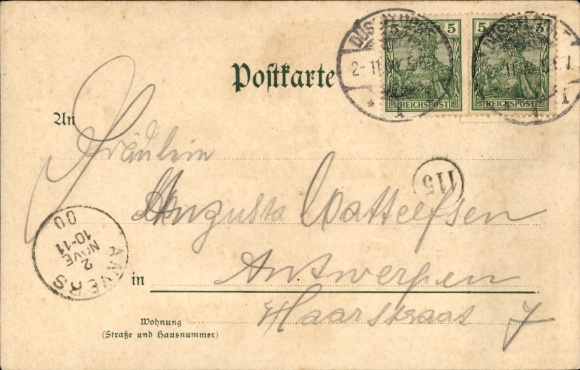 5 5
DÜSSELDORF
2-11
REICHSPOST REICHSPOST
Postkarte
An
Fräulein
115
Augusta
ANVERS
10-11
2
NOVE
00
in Antwerpen
Haarstraat 7
Wohnung
(Straße und Hausnummer)